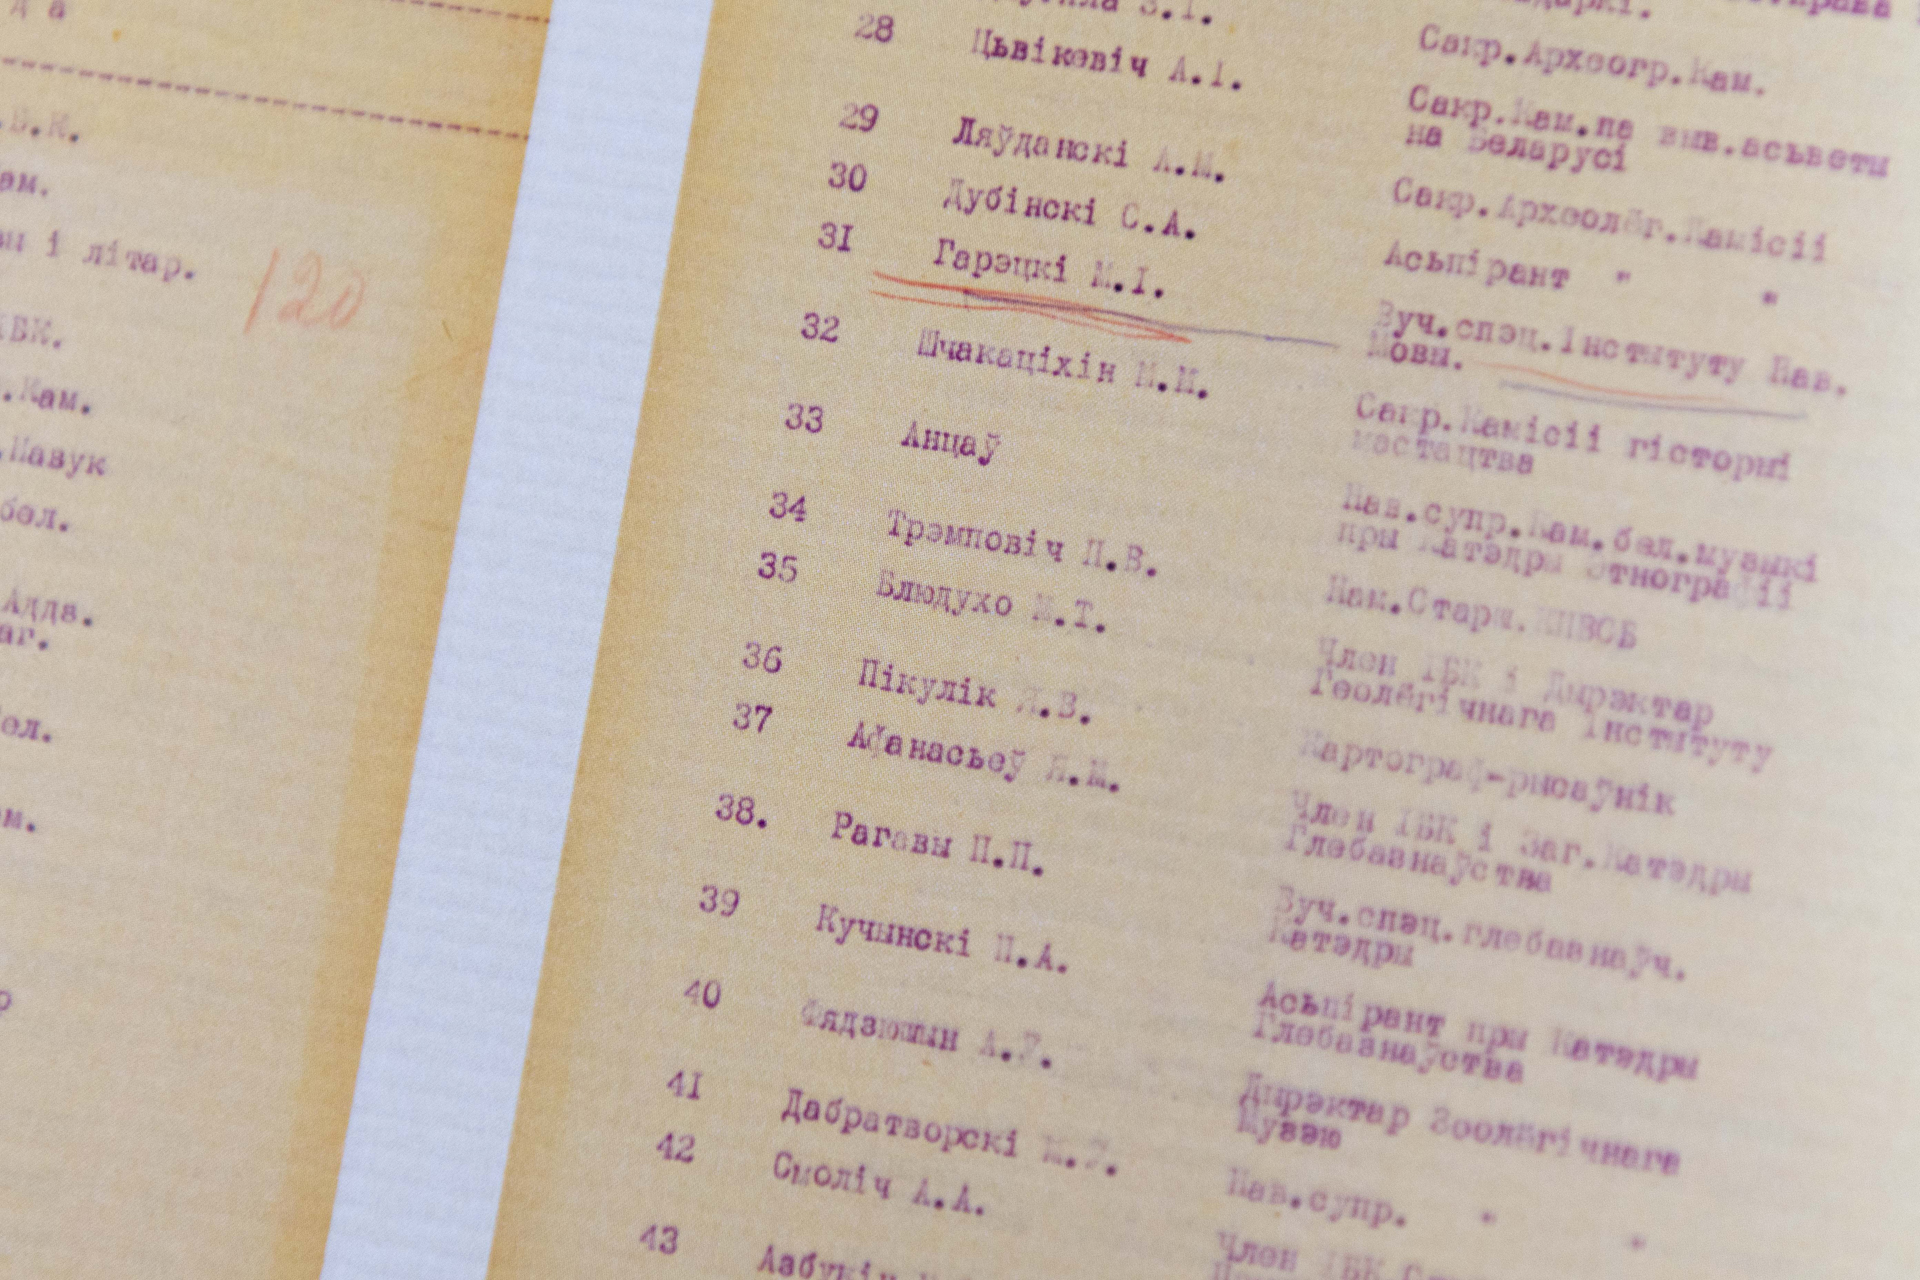 д а
.В.К.
ам.
і літар.
120
ІБК.
.Кам.
.Навук
бел.
Адда.
аг.
ел.
28 Цьвікевіч А.І. Сакр.Археогр.Кам.
29 Ляўданскі А.М. Сакр.Кам.па выв.асьветы
на Беларусі
30 Дубінскі С.А. Сакр.Археолёг.Камісіі
31 Гарэцкі М.І. Асьпірант " "
Вуч.спэц.Інстытуту Нав.
Мовы.
32 Шчакаціхін М.М. Сакр.Камісіі гісторыі
мастацтва
33 Анцаў Нав.супр.Кам.бел.музыкі
пры Катэдры Этнографіі
34 Трэмповіч П.В. Нам.Старш.
35 Блюдухо М.Т. Член ІБК і Дырэктар
Геолёгічнага Інстытуту
36 Пікулік .В. Картограф-рысаўнік
37 Афанасьеў Я.М. Член ІБК і Заг.Катэдры
Глебазнаўства
38. Рагавы П.П. Вуч.спэц.глебазнаўч.
Катэдры
39 Кучынскі П.А. Асьпірант пры Катэдры
Глебазнаўства
40 Фядзюшын А.У. Дырэктар Зоолёгічнага
Музэю
41 Дабратворскі Нав.супр. " "
42 Смоліч А.А. Член ІБК
43 Азбукін